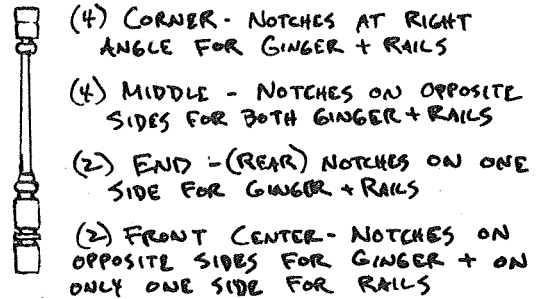 (4) CORNER - NOTCHES AT RIGHT
ANGLE FOR GINGER + RAILS
(4) MIDDLE - NOTCHES ON OPPOSITE
SIDES FOR BOTH GINGER + RAILS
(2) END - (REAR) NOTCHES ON ONE
SIDE FOR GINGER + RAILS
(2) FRONT CENTER - NOTCHES ON
OPPOSITE SIDES FOR GINGER + ON
ONLY ONE SIDE FOR RAILS